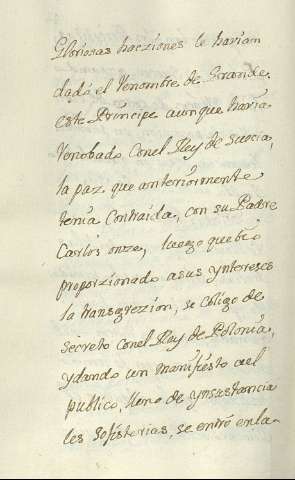 Gloriosas hacziones le havian
dado el renombre de Grande
este Principe aunque havia
renobado con el Rey de suecia,
la paz que anteriormente
tenia Contraida, con su Padre
Carlos onze, luego que bio
proporzionado a sus yntereses
la transgrezion, se obligo de
secreto con el Rey de Polonia,
y dando un manifiesto a el
publico, lleno de ynsustancia
les sofisterias, se entró en la